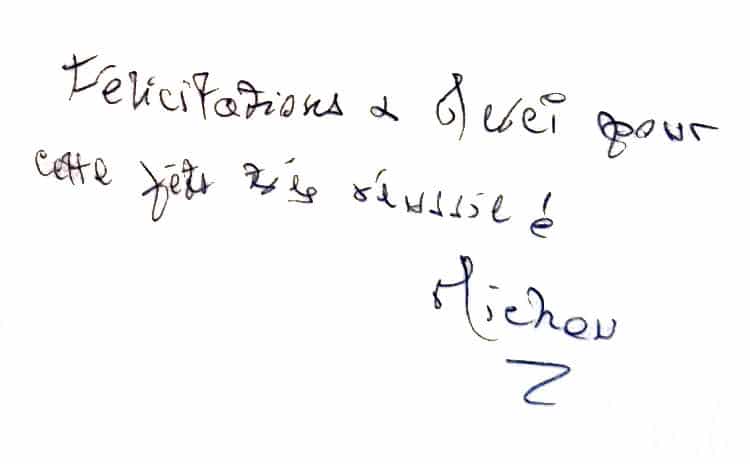 Félicitations à pour
cette fête très réussie !
Michou